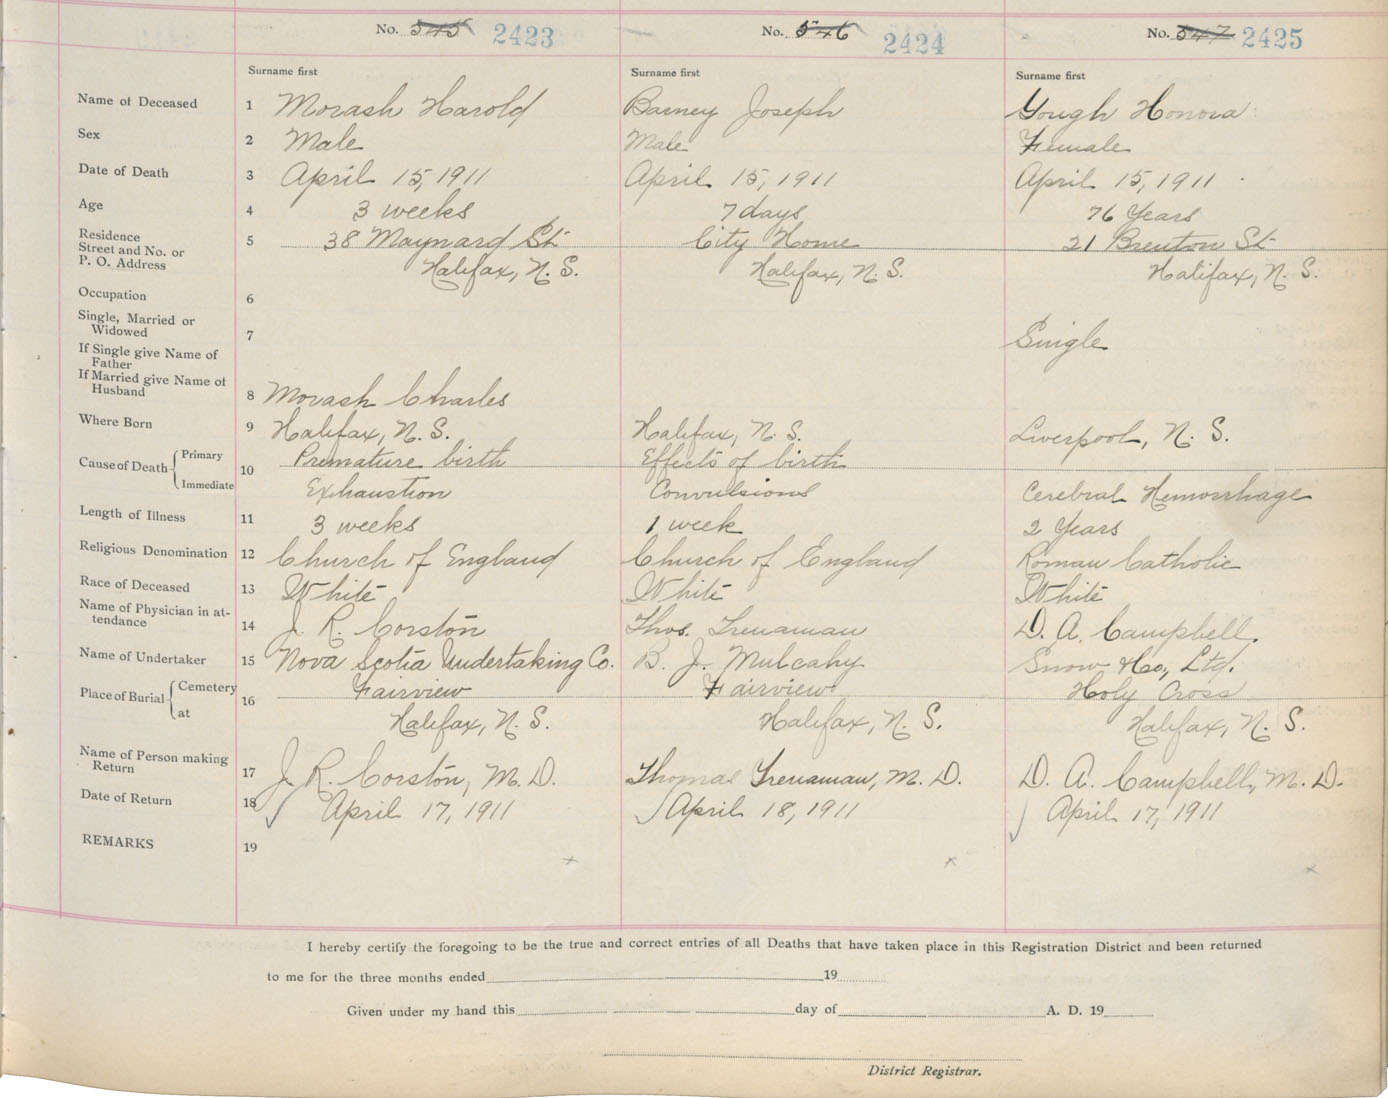 No. 545 2423 No. 546 2424 No. 547 2425
Surname first Surname first Surname first
Name of Deceased 1 Morash Harold Barney Joseph Gough Honora
Sex 2 Male Male Female
Date of Death 3 April 15, 1911 April 15, 1911 April 15, 1911
Age 4 3 weeks 7 days 76 Years
Residence
Street and No. or 5 38 Maynard St City Home 21 Brenton St
P. O. Address Halifax, N. S. Halifax, N. S. Halifax, N. S.
Occupation 6
Single, Married or
Widowed 7 Single
If Single give Name of
Father
If Married give Name of
Husband 8 Morash Charles
Where Born 9 Halifax, N. S. Halifax, N. S. Liverpool, N. S.
Cause of Death Primary 10 Premature birth Effects of birth
Immediate Exhaustion Convulsions Cerebral Hemorrhage
Length of Illness 11 3 weeks 1 week 2 Years
Religious Denomination 12 Church of England Church of England Roman Catholic
Race of Deceased 13 White White White
Name of Physician in at-
tendance 14 J. R. Corston Thos. Trenaman D. A. Campbell.
Name of Undertaker 15 Nova Scotia Undertaking Co. B. J. Mulcahy Snow & Co., Ltd.
Place of Burial Cemetery 16 Fairview Fairview Holy Cross
at Halifax, N. S. Halifax, N. S. Halifax, N. S.
Name of Person making
Return 17 J. R. Corston, M. D. Thomas Trenaman, M. D. D. A. Campbell, M. D.
Date of Return 18 April 17, 1911 April 18, 1911 April 17, 1911
REMARKS 19
I hereby certify the foregoing to be the true and correct entries of all Deaths that have taken place in this Registration District and been returned
to me for the three months ended 19
Given under my hand this day of A. D. 19
District Registrar.